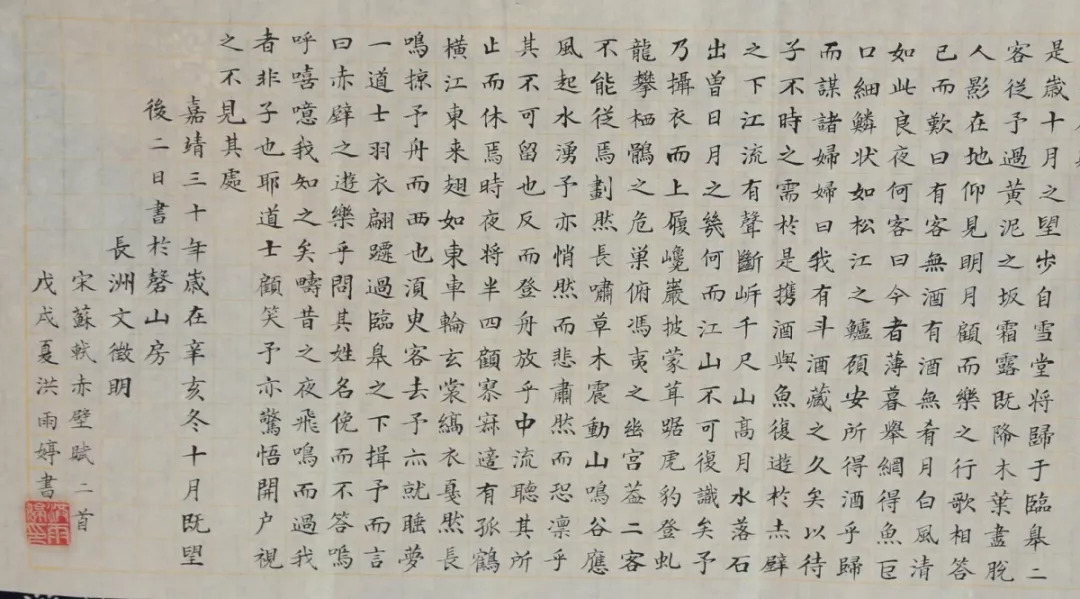 是歲十月之望步自雪堂將歸于臨皋二
客從予過黃泥之坂霜露既降木葉盡脫
人影在地仰見明月顧而樂之行歌相答
已而歎曰有客無酒有酒無肴月白風清
如此良夜何客曰今者薄暮舉網得魚巨
口細鱗狀如松江之鱸顧安所得酒乎歸
而謀諸婦婦曰我有斗酒藏之久矣以待
子不時之需於是携酒與魚復遊於赤壁
之下江流有聲斷岸千尺山高月水落石
出曾日月之幾何而江山不可復識矣予
乃攝衣而上履巉巖披蒙茸踞虎豹登虬
龍攀栖鶻之危巢俯馮夷之幽宮蓋二客
不能從焉劃然長嘯草木震動山鳴谷應
風起水湧予亦悄然而悲肅然而恐凛乎
其不可留也反而登舟放乎中流聽其所
止而休焉時夜将半四顧寥寂適有孤鶴
橫江東来翅如車輪玄裳縞衣戛然長
鳴掠予舟而西也湏臾客去予亦就睡夢
一道士羽衣翩躚過臨皋之下揖予而言
曰赤壁之遊樂乎問其姓名俛而不答嗚
呼嘻噫我知之矣疇昔之夜飛鳴而過我
者非子也耶道士顧笑予亦驚悟開户視
之不見其處
嘉靖三十年歲在辛亥冬十月既望
後二日書於磬山房
長洲文徵明
宋蘇軾赤壁賦二首
戊戌夏洪雨婷書